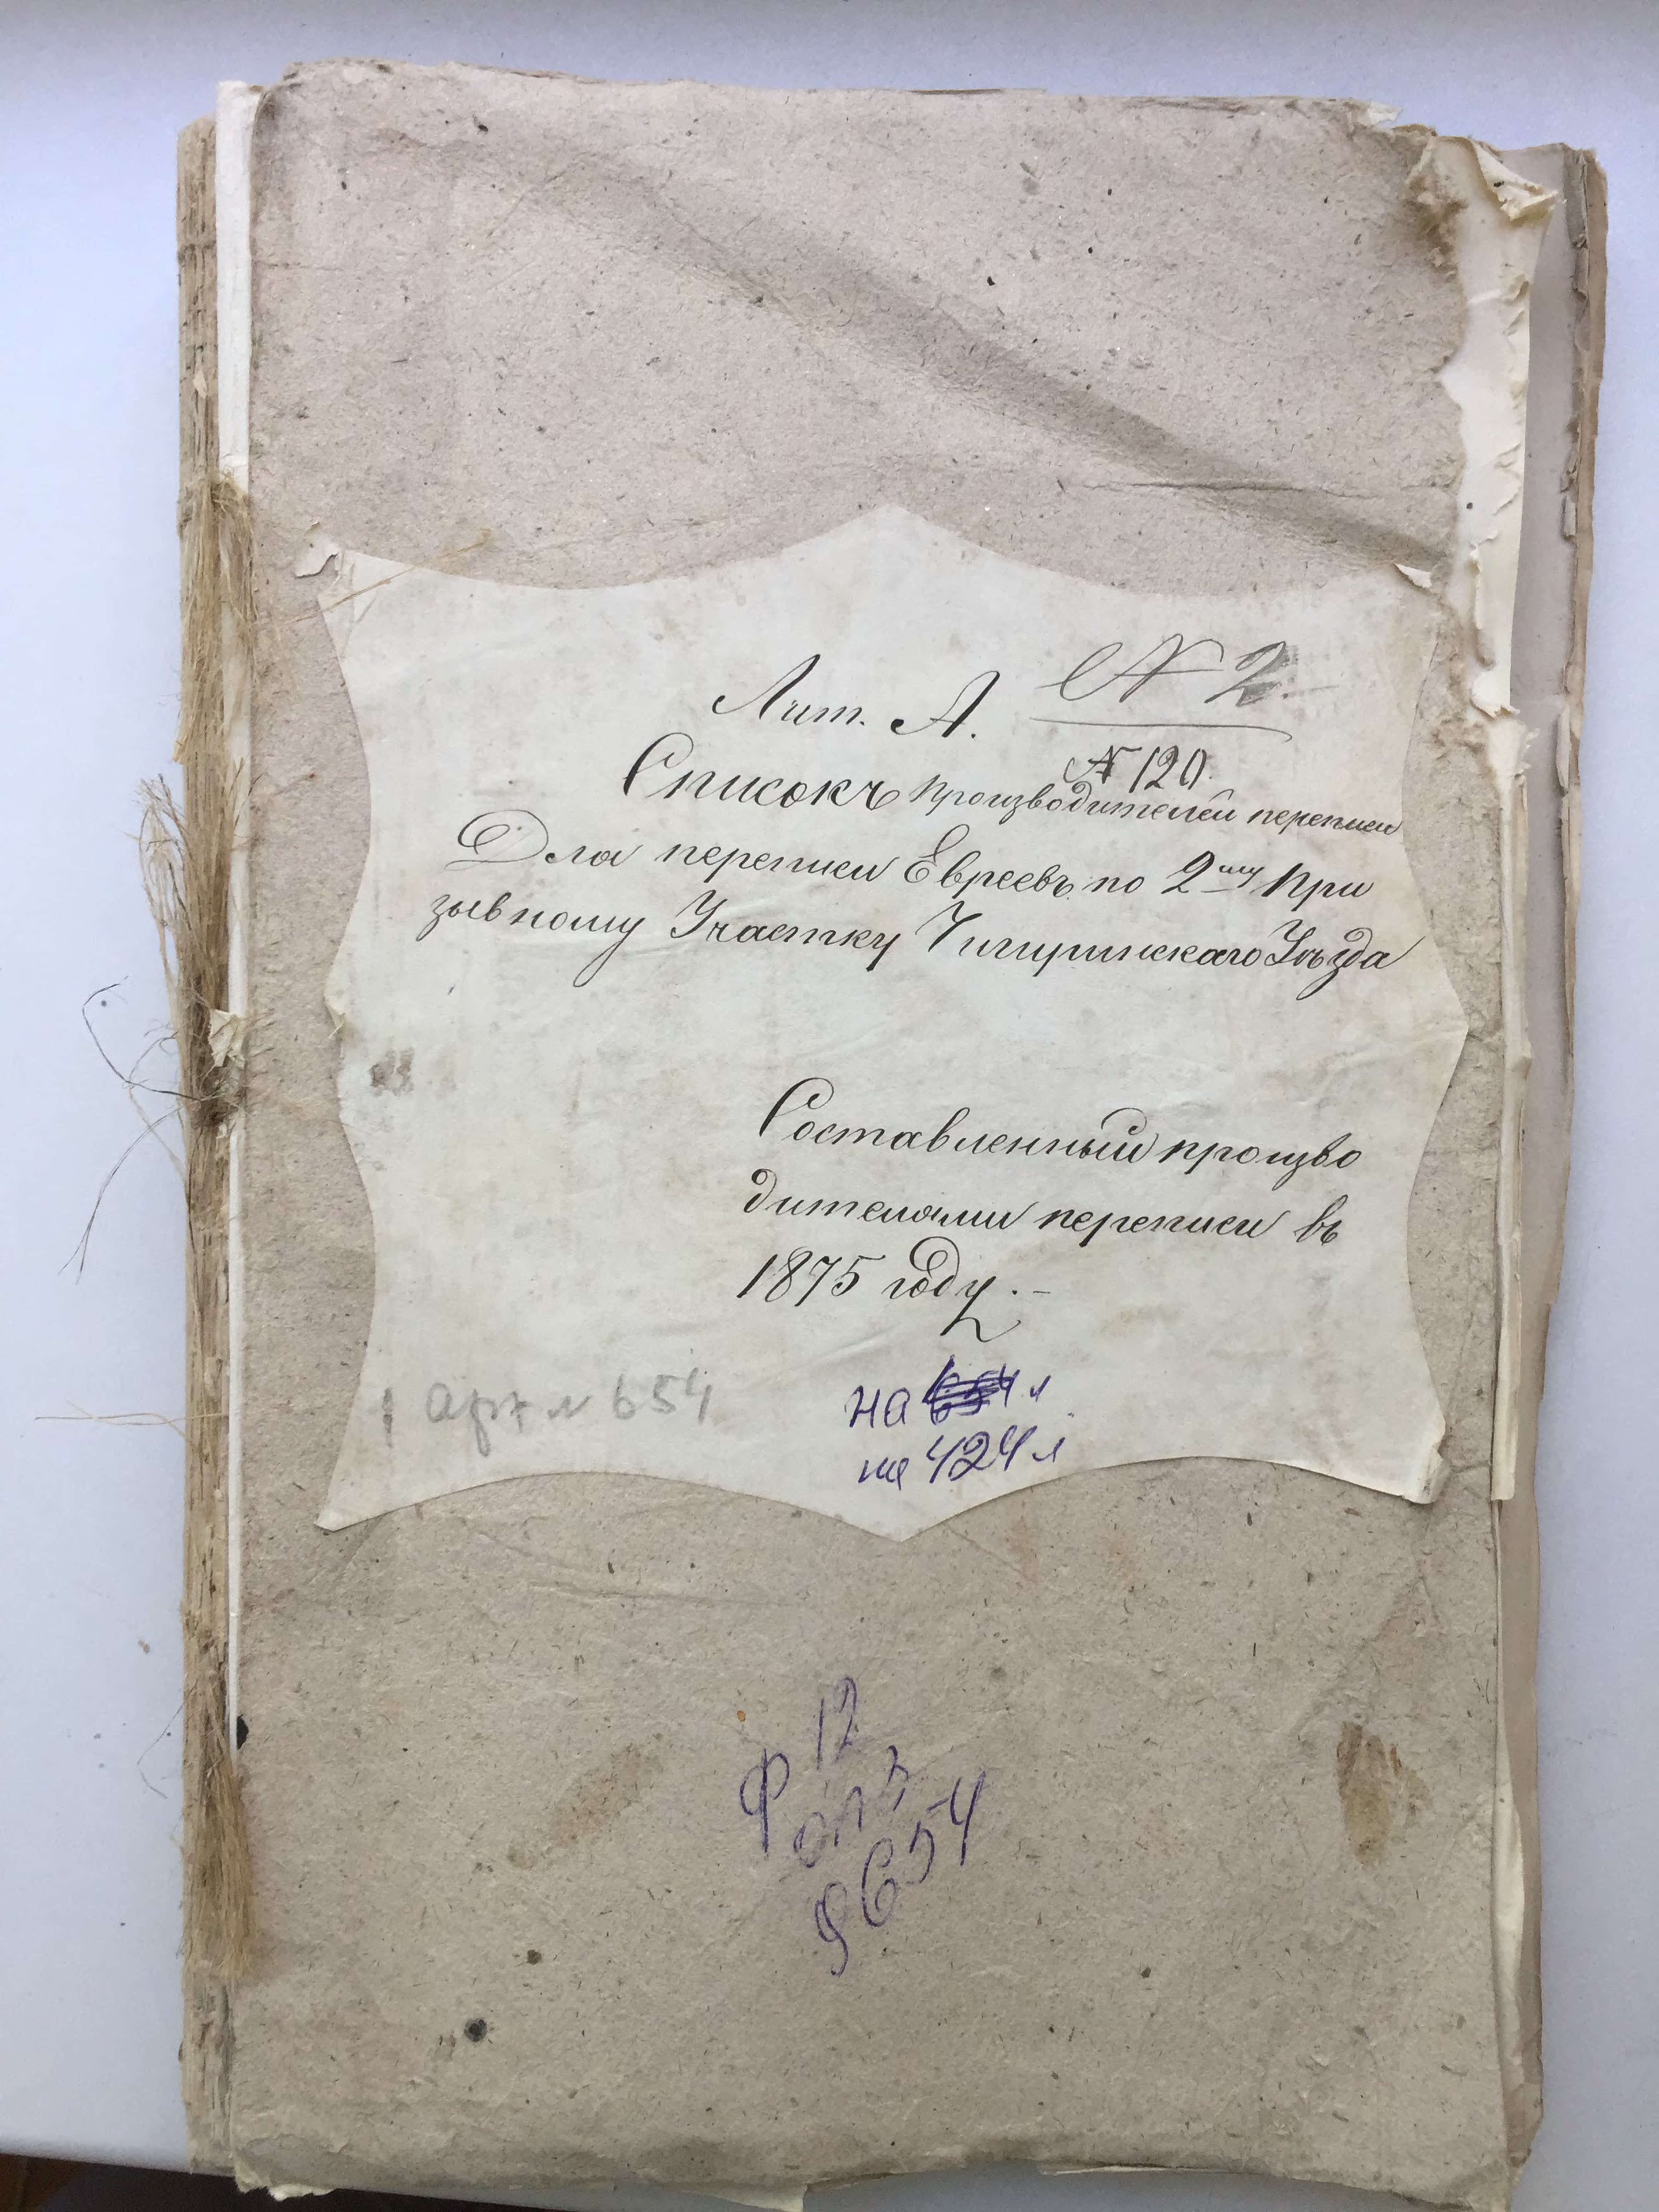 Лит. А. № 2.
№ 120.
Списокъ производителей переписи
Для переписи Евреевъ по 2му При
зывному Участку Чигиринскаго Уѣзда
Составленный произво
дителями переписи въ
1875 году.-
арх № 654
на 654 л
на 424 л
Ф 12
оп 3
д 654